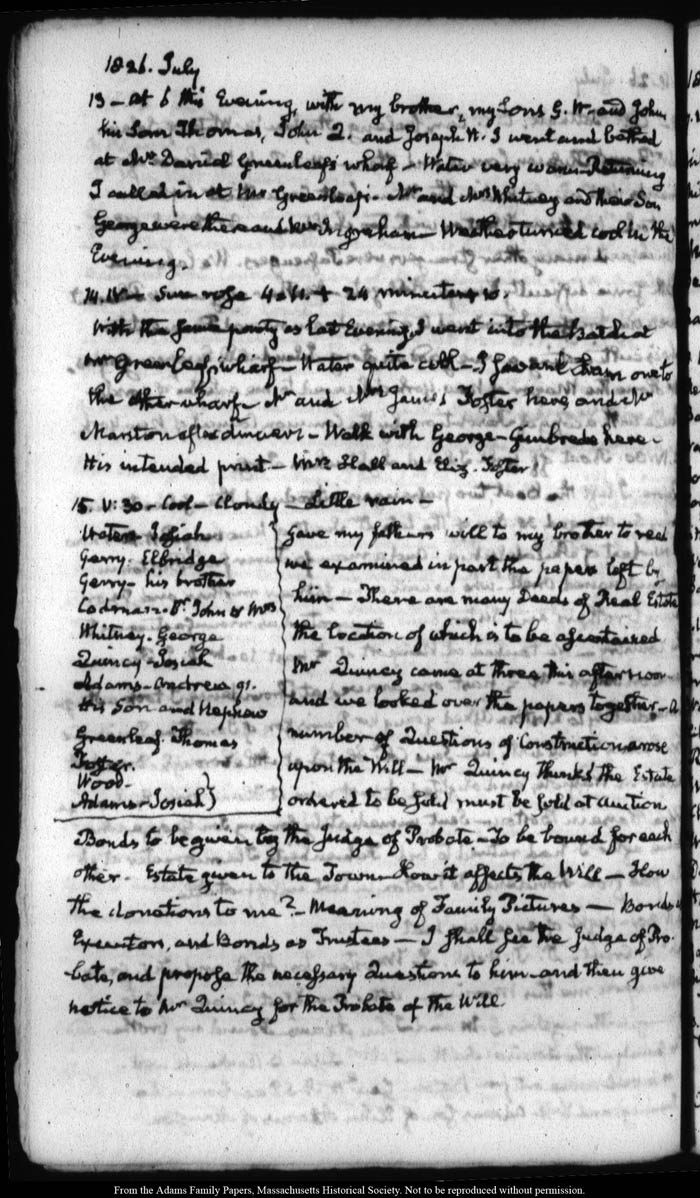 1826. July
13 – At 6 this Evening, with my brother, my Sons G. W. and John,
his Sons Thomas, John Q. and Joseph H. I went and bathed
at Mr. Daniel Greenleaf's wharf – Water very warm – Returning
I called in at Mr Greenleaf's – Mr and Mrs Whitney and their Son
George were there and Mrs Ingraham – Weather turned cool in the
Evening.
14. IV – Sun rose 4.h. + 24 minutes
With the same party as last Evening, I went into the bath at
Mr Greenleaf's wharf – Water quite cold – I swam one to
the other wharf – Mr and Mrs James Foster here, and Mr
Marston after dinner – Walk with George – Gimbrede here –
His intended print – Mrs Hall and Eliz. Foster
15. V:30 – Cool – Cloudy – Little rain –
Waters Josiah
Gerry. Elbridge
Gerry – his brother
Codman – Dr. John & Mrs
Whitney. George
Quincy – Josiah
Adams – Andrew
His Son and Nephew
Greenleaf. Thomas
Foster.
Wood –
Adams – Josiah
Gave my father's will to my brother to read
we examined in part the papers left by
him – There are many Deeds of Real Estate
the location of which is to be ascertained
Mr Quincy came at three this afternoon
and we looked over the papers together – a
number of Questions of Construction arose
upon the Will – Mr Quincy thinks the Estate
ordered to be sold must be sold at auction
Bonds to be given by the Judge of Probate – To be bound for each
other – Estate given to the Town – How it affects the Will – How
the donations to me? – Meaning of Family Pictures – Bonds as
Executors, and Bonds as Trustees – I shall see the Judge of Pro-
bate, and propose the necessary Questions to him – and then give
notice to Mr Quincy for the Probate of the Will
From the Adams Family Papers, Massachusetts Historical Society. Not to be reproduced without permission.